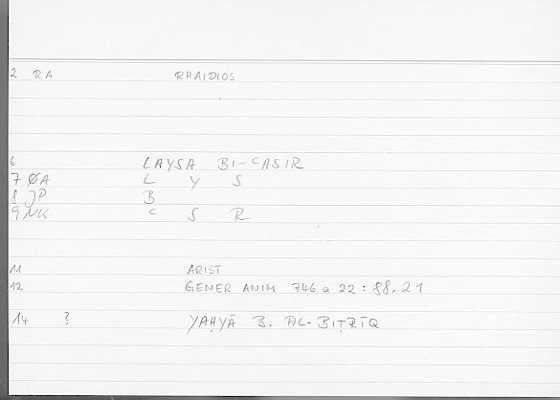 2 RA RHAIDIOS
6 LAYSA BI-ᶜASIR
7 ØA L Y S
8 JP B
9 NK ᶜ S R
11 ARIST
12 GENER ANIM 746 a 22 : 88.21
14 ? YAḤYĀ B. AL-BIṬRĪQ